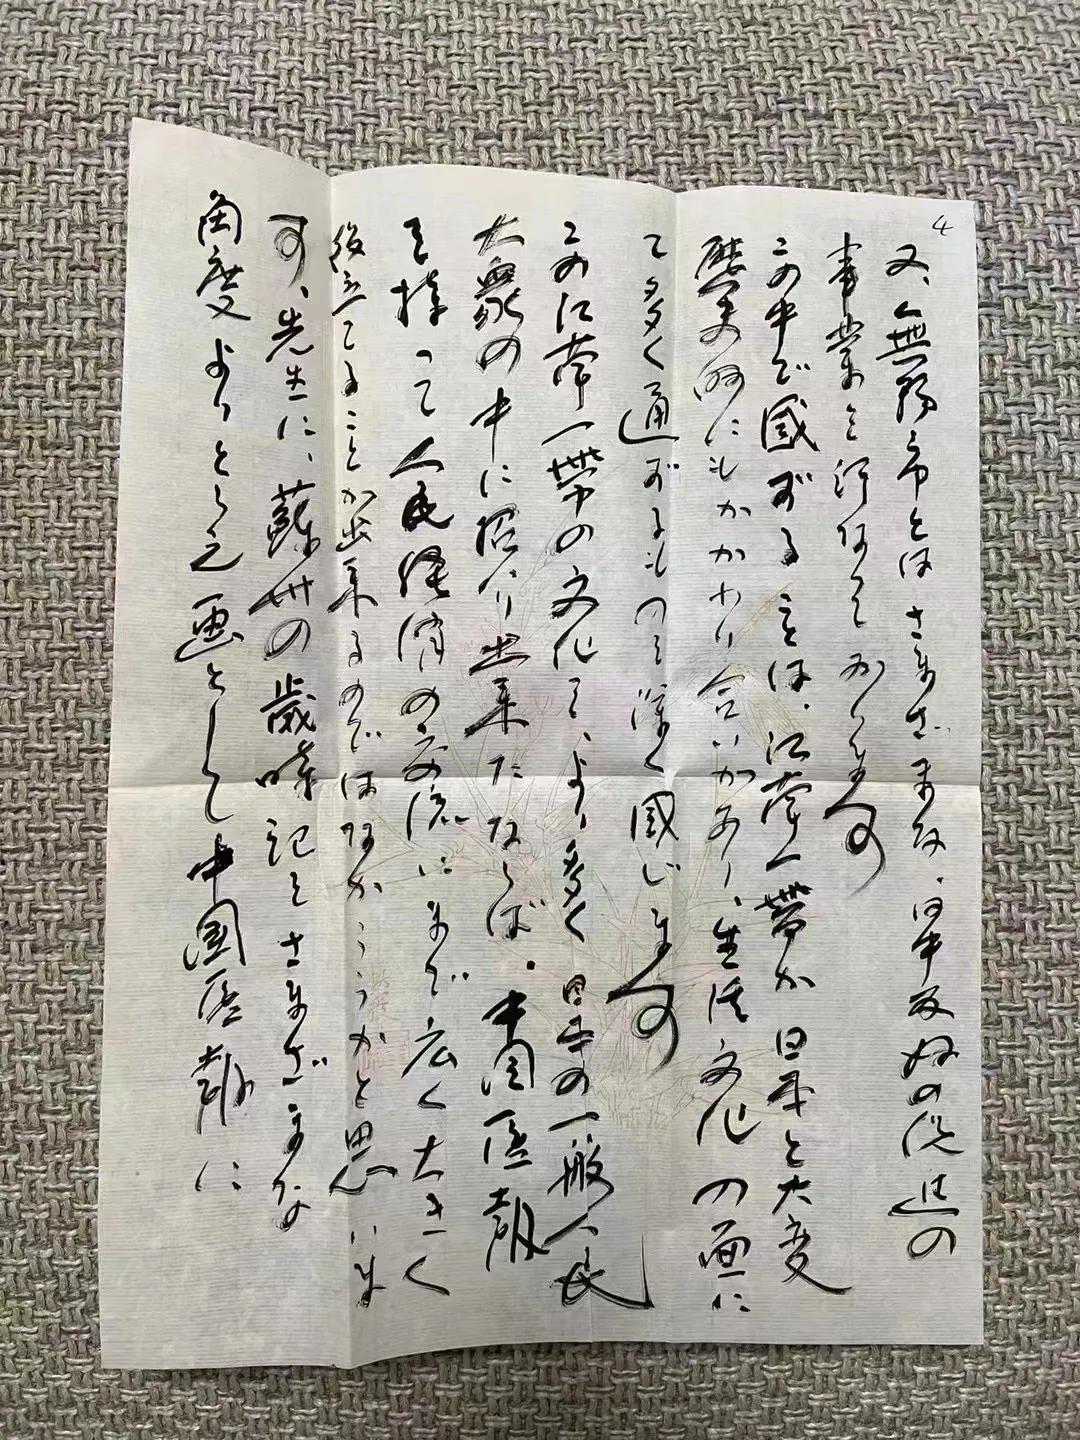 4
又、無錫市とはさまざまな、日中友好の促進の
事業を行なっております
この中で感ずることは、江南一帯が日本と大変
歴史的にもかかわり合いがあり、生活文化の面に
て多く通ずるものを深く感じます
この江南一帯の文化を、より多く日本の一般人民
大衆の中に紹介出来たならば、中国医報
を持って人民経済の交流にまで広く大きく
役立てることが出来るのではなかろうかと思いま
す、先生に、蘇州の歳時記をさまざまな
角度よりとらえ画として中国医報に